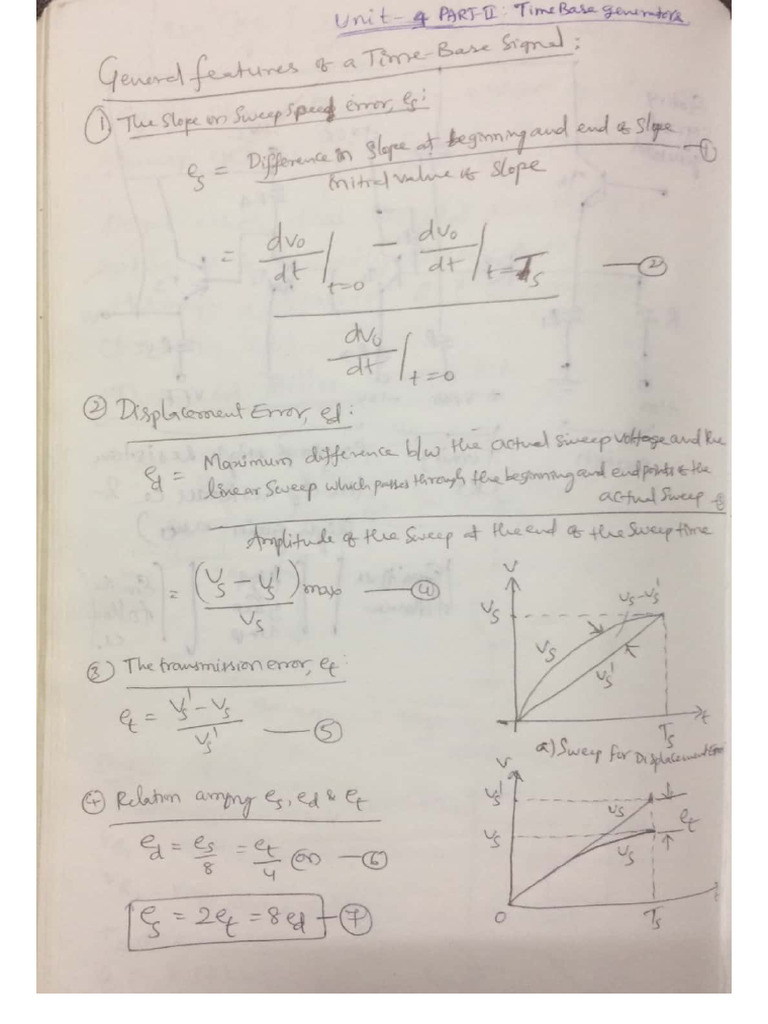 Unit-4 PART-II: Time Base Generators
General features of a Time-Base Signal:
① The Slope or Sweep Speed error, es:
es = Difference in slope at beginning and end of slope
initial value of slope —①
= dv0/dt |t=0 − dv0/dt |t=Ts —②
dv0/dt |t=0
② Displacement Error, ed:
ed = Maximum difference b/w the actual sweep voltage and the
linear sweep which passes through the beginning and end points of the
actual sweep
Amplitude of the sweep at the end of the sweep time
= (Vs − Vs')max —④
Vs
③ The transmission error, et:
et = Vs' − Vs —⑤
Vs'
④ Relation among es, ed & et
ed = es/8 = et/4 (or) —⑥
es = 2et = 8ed —⑦
V
Vs
vs-vs'
vs
vs'
Ts
t
a) Sweep for Displacement Error
V
Vs'
Vs
vs
et
vs
0
Ts
t